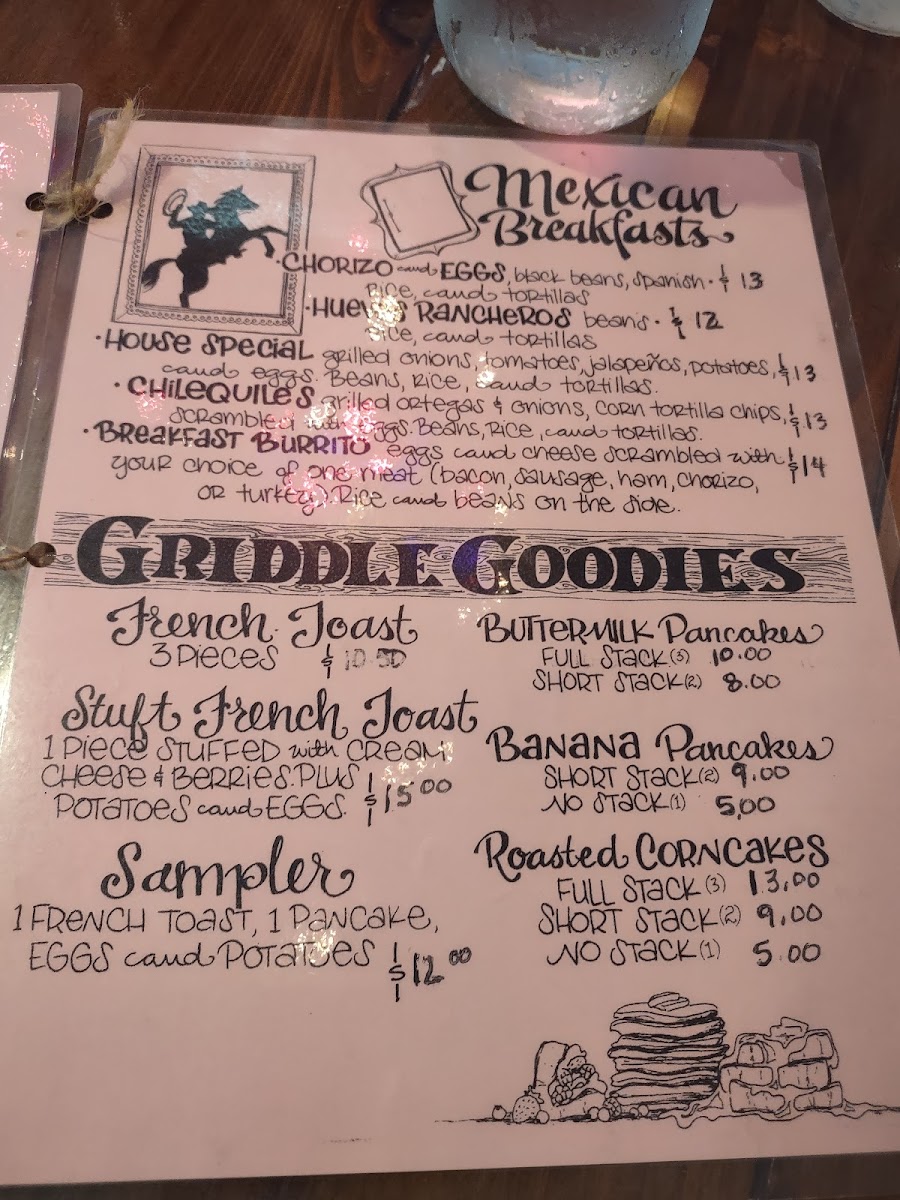 Mexican
Breakfasts
• CHORIZO and EGGS, black beans, spanish • $13
Rice, and tortillas
• HUEVOS RANCHEROS beans • $12
Rice, and tortillas
• HOUSE SPECIAL grilled onions, tomatoes, jalapeños, potatoes, $13
and eggs. Beans, Rice, and tortillas.
• CHILEQUILES grilled ORTEGAS & ONIONS, CORN tortilla chips, $13
scrambled with Eggs. Beans, Rice, and tortillas.
• BREAKFAST BURRITO eggs and cheese scrambled with $14
your choice of one meat (bacon, sausage, ham, chorizo,
or turkey). Rice and beans on the side.
GRIDDLE GOODIES
French Toast
3 PIECES $10.50
Stuft French Toast
1 PIECE STUFFED with CREAM
CHEESE & BERRIES. PLUS
POTATOES and EGGS. $15.00
Sampler
1 FRENCH TOAST, 1 PANCAKE,
EGGS and POTATOES $12.00
BUTTERMILK Pancakes
FULL STACK (3) 10.00
SHORT STACK (2) 8.00
BANANA Pancakes
SHORT STACK (2) 9.00
NO STACK (1) 5,00
Roasted CORNCAKES
FULL STACK (3) 13.00
SHORT STACK (2) 9.00
NO STACK (1) 5.00